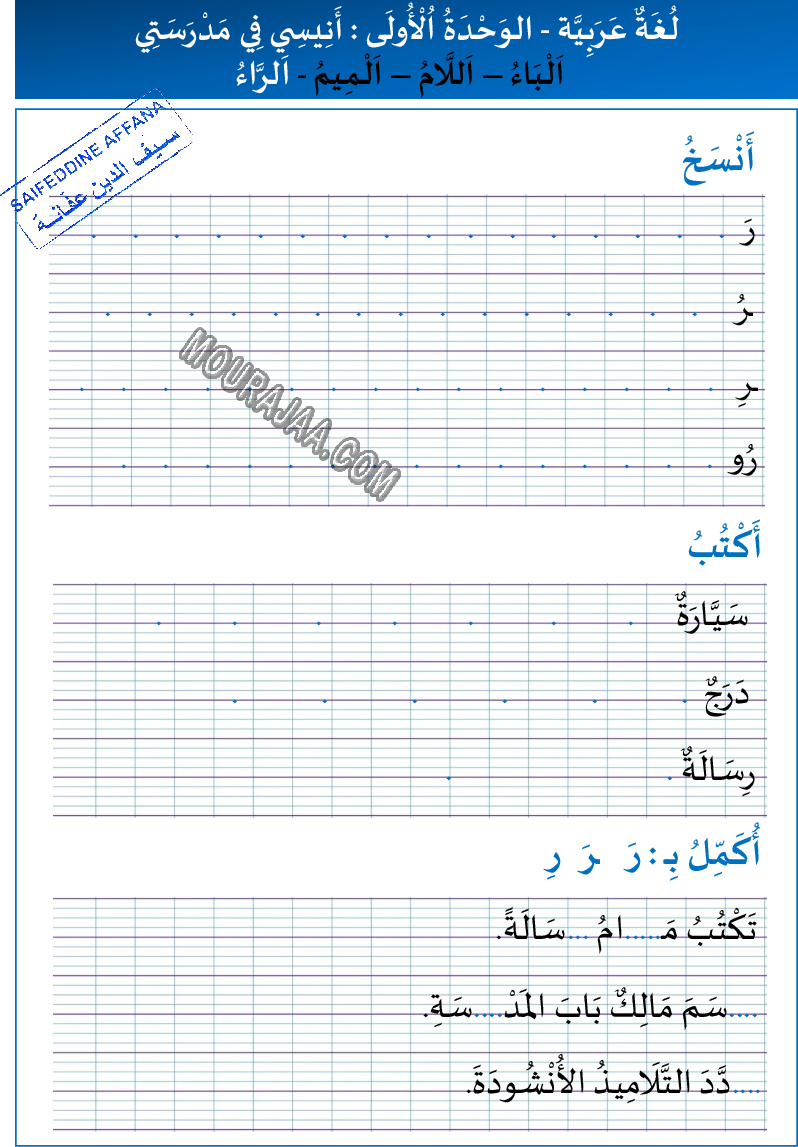 لُغَةٌ عَرَبِيَّة - الوَحْدَةُ اُلْأُولَى : أَنِيسِي فِي مَدْرَسَتِي
اَلْبَاءُ – اَللَّامُ – اَلْمِيمُ - اَلرَّاءُ
SAIFEDDINE AFFANA
سيف الدين عفّانة
أَنْسَخُ
رَ
ـرُ
ـرِ
رُو
MOURAJAA.COM
أَكْتُبُ
سَيَّارَةٌ
دَرَجٌ
رِسَالَةٌ
أُكَمِّلُ بِـ : رَ ـرَ رِ
تَكْتُبُ مَـ.....امُ ...سَالَةً.
....سَمَ مَالِكٌ بَابَ المَدْ....سَةِ.
....دَّدَ التَّلَامِيذُ الأُنْشُودَةَ.